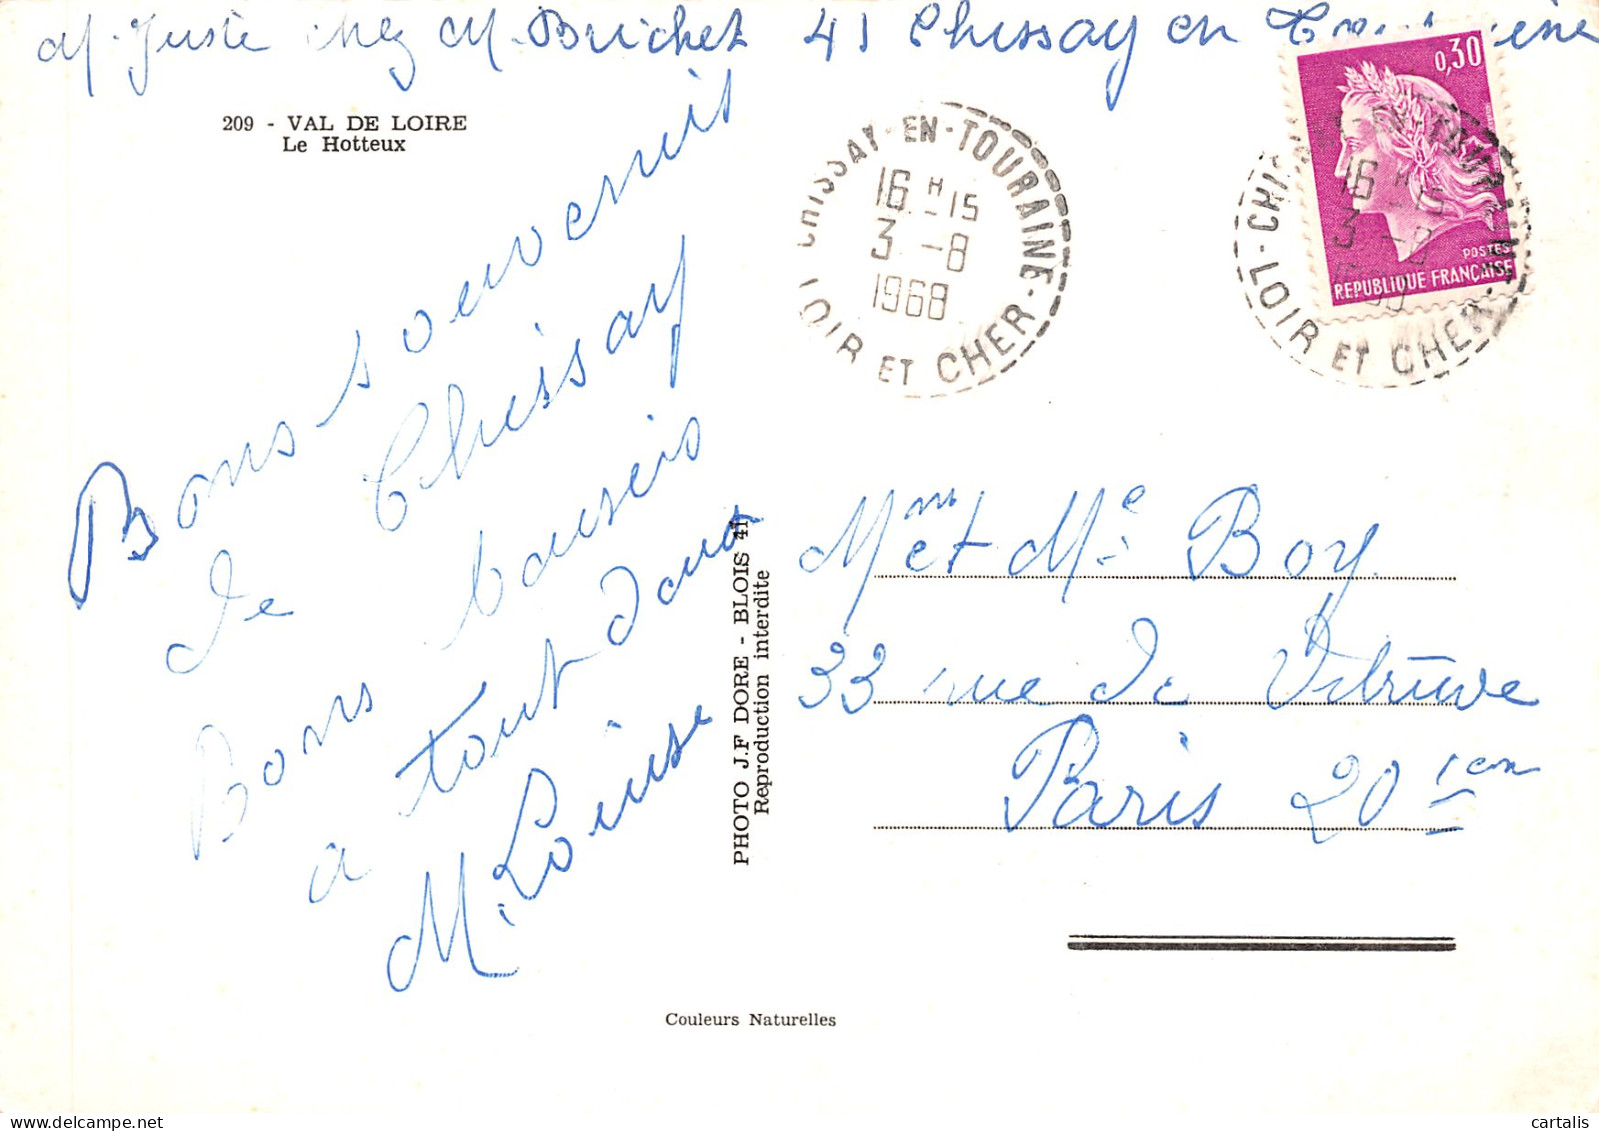 M. Juste chez M. Brichet 41 Chissay en
209 - VAL DE LOIRE
Le Hotteux
Bons souvenirs
de Chissay
Bons baisers
a tout dans
M. Louise
PHOTO J.F DORE - BLOIS 41
Reproduction interdite
Couleurs Naturelles
CHISSAY-EN-TOURAINE
16 H-15
3 -8
1968
LOIR ET CHER
0,30
POSTES
REPUBLIQUE FRANÇAISE
16 H-15
3 -8
LOIR ET CHER
Mr et Me Boy
33 rue de Vitruve
Paris 20 iem
cartalis